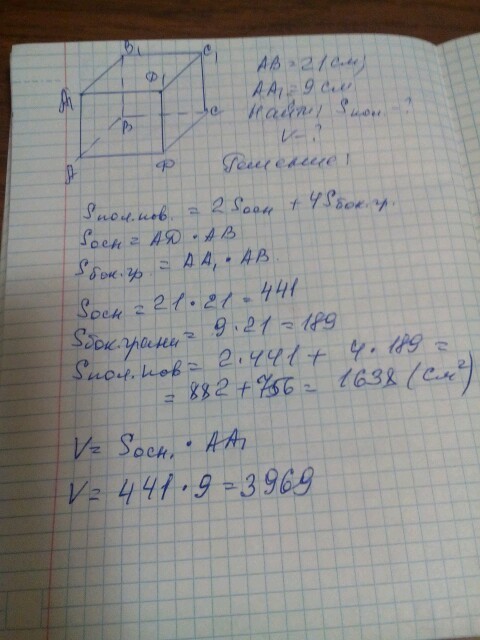 B₁ C₁
A₁ D₁
B C
A D
AB = 21(см)
AA₁ = 9 см
Найти: Sпол. - ?
V - ?
Решение:
Sпол.пов. = 2Sосн + 4Sбок.гр.
Sосн = AD · AB
Sбок.гр. = AA₁ · AB.
Sосн = 21 · 21 = 441
Sбок.грани = 9 · 21 = 189
Sпол.пов = 2 · 441 + 4 · 189 =
= 882 + 756 = 1638 (см²)
V = Sосн. · AA₁
V = 441 · 9 = 3969